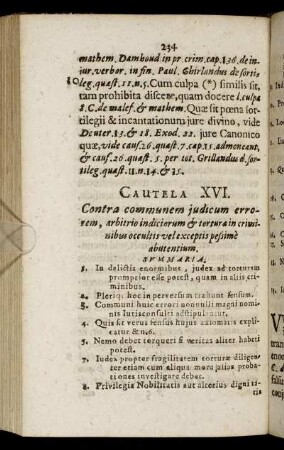 234
mathem. Damhoud. in pr. crim. cap. 136. de in-
jur. verbor. in fin. Paul. Ghirlandus de sorti-
leg. quæst. 11. n. 5. Cum culpa (*) similis sit,
tam prohibita discere, quam docere l. culpa
8. C. de malef. & mathem. Quæ sit pœna sor-
tilegii & incantationum jure divino, vide
Deuter. 13. & 18. Exod. 22. jure Canonico
quæ, vide caus. 26. quæst. 7. cap. 15. admoneant,
& caus. 26. quæst. 5. per tot. Grillandus d. sor-
tileg. quæst. 11. n. 14. & 15.
CAUTELA XVI.
Contra communem judicum erro-
rem, arbitrio indiciorum & tortura in crimi-
nibus occultis vel exceptis pessimè
abutentium.
SUMMARIA.
1. In delictis enormibus, judex ad torturam
promptior esse potest, quam in aliis cri-
minibus.
2. Pleriq; hoc in perversum trahunt sensum.
3. Communi huic errori nonnulli magni nomi-
nis Jurisconsulti adstipulantur.
4. Quis sit verus sensus hujus axiomatis expli-
catur & n. 6.
5. Nemo debet torqueri si veritas aliter haberi
potest.
7. Judex propter fragilitatem torturæ diligen-
ter etiam cum aliqua mora alias proba-
tiones investigare debet.
8. Privilegia Nobilitatis aut alterius digni ti-
tis